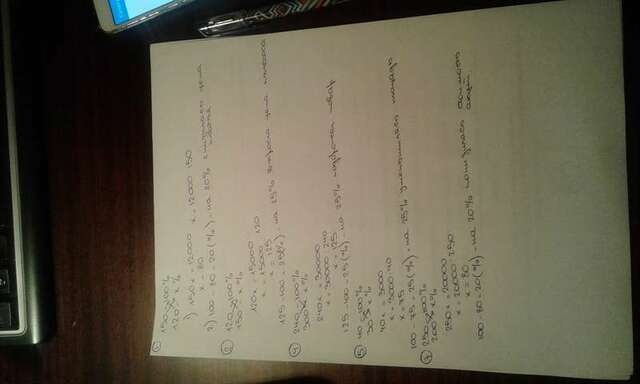 ①
150 - 100%
120 - x%
1) 150x = 12000 x = 12000 : 150
x = 80
2) 100 - 80 = 20 (%) - на 20% снизилась цена
②
120 - 100%
150 - x%
120x = 15000
x = 15000 : 120
x = 125
125 - 100 = 25 (%) - на 25% возросла цена
④ 240 - 100%
300 - x%
240x = 30000
x = 30000 : 240
x = 125
125 - 100 = 25 (%) - на 25% подорожал товар
⑤ 40 - 100%
30 - x%
40x = 3000
x = 3000 : 40
x = 75
100 - 75 = 25 (%) - на 25% уменьшилась площадь
⑦ 250 - 100%
200 - x%
250x = 20000
x = 20000 : 250
x = 80
100 - 80 = 20 (%) - на 20% понизилась стоимость
акций